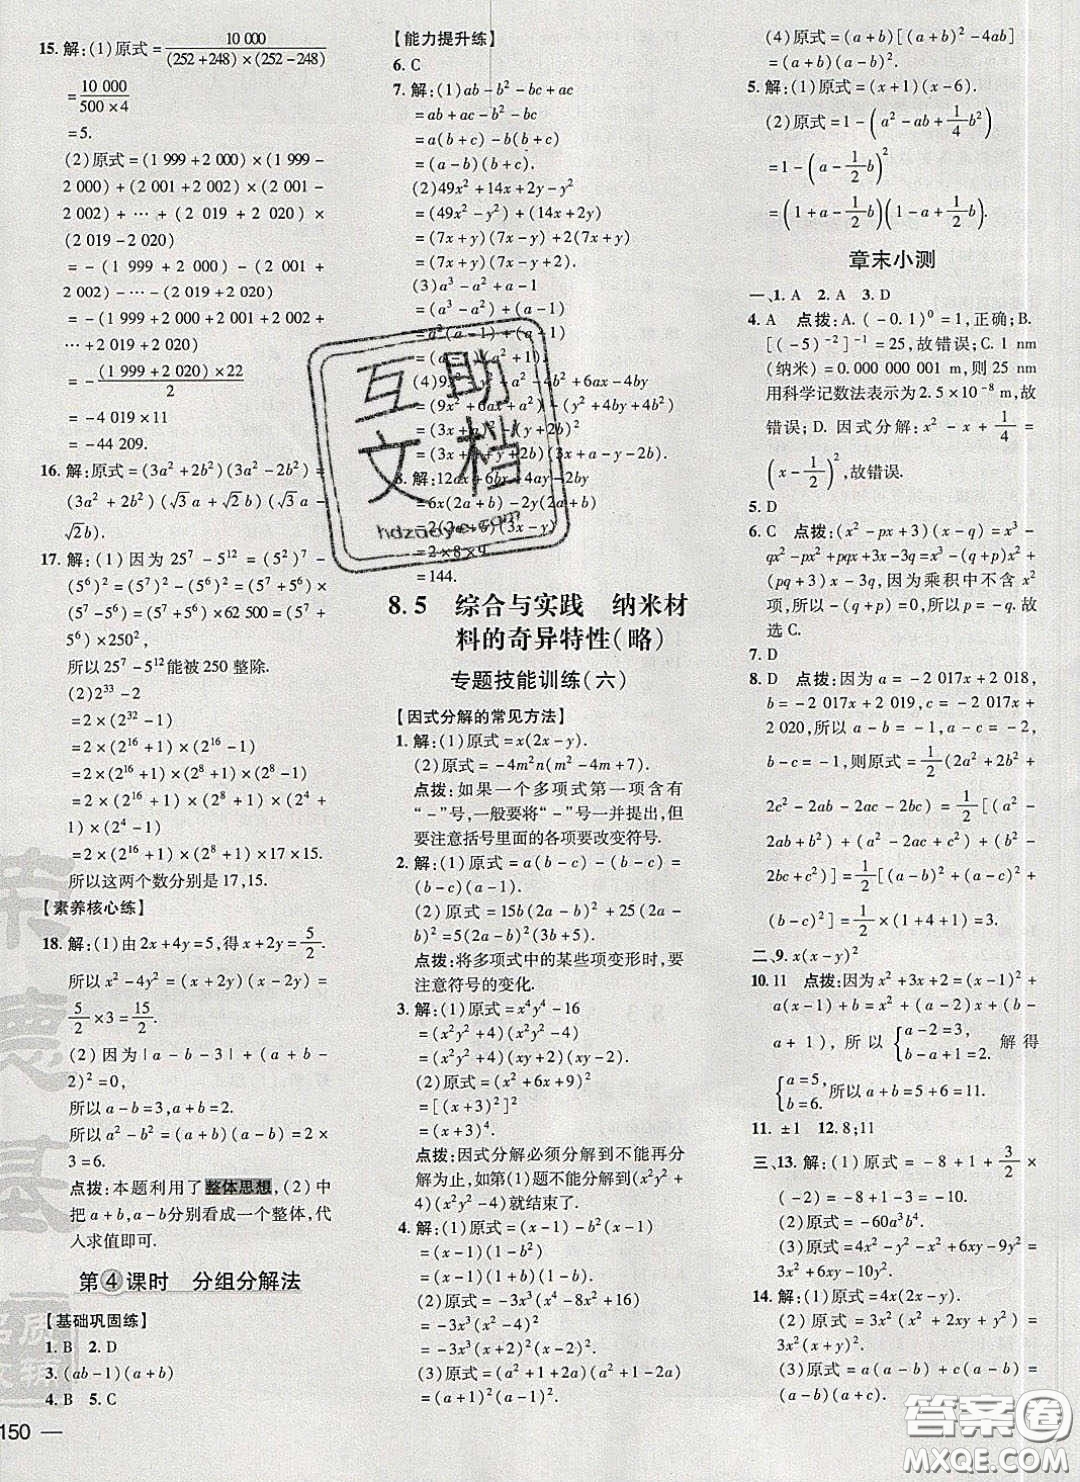 15. 解:(1)原式=10 000/((252+248)×(252-248))
=10 000/(500×4)
=5.
(2)原式=(1 999+2 000)×(1 999-
2 000)+(2 001+2 002)×(2 001-
2 002)+…+(2 019+2 020)×
(2 019-2 020)
=-(1 999+2 000)-(2 001+
2 002)-…-(2 019+2 020)
=-(1 999+2 000+2 001+
2 002+…+2 019+2 020)
=-((1 999+2 020)×22)/2
=-4 019×11
=-44 209.
16. 解:原式=(3a²+2b²)(3a²-2b²)=
(3a²+2b²)(√3a+√2b)(√3a-
√2b).
17. 解:(1)因为25⁷-5¹²=(5²)⁷-
(5⁶)²=(5⁷)²-(5⁶)²=(5⁷+5⁶)×
(5⁷-5⁶)=(5⁷+5⁶)×62 500=
(5⁷+5⁶)×250×250,
所以25⁷-5¹²能被250整除.
(2)2³³-2
=2×(2³²-1)
=2×(2¹⁶+1)×(2¹⁶-1)
=2×(2¹⁶+1)×(2⁸+1)×(2⁸-1)
=2×(2¹⁶+1)×(2⁸+1)×(2⁴+
1)×(2⁴-1)
=2×(2¹⁶+1)×(2⁸+1)×17×15.
所以这两个数分别是17,15.
【素养核心练】
18. 解:(1)由2x+4y=5,得x+2y=5/2.
所以x²-4y²=(x+2y)(x-2y)=
5/2×3=15/2.
(2)因为|a-b-3|+(a+b-
2)²=0,
所以a-b=3,a+b=2.
所以a²-b²=(a+b)(a-b)=2×
3=6.
点拨:本题利用了整体思想,(2)中
把a+b,a-b分别看成一个整体,代
入求值即可.
第④课时 分组分解法
【基础巩固练】
1. B 2. D
3. (ab-1)(a+b)
4. B 5. C
150 —
【能力提升练】
6. C
7. 解:(1)ab-b²-bc+ac
=ab+ac-b²-bc
=a(b+c)-b(b+c)
=(a-b)(b+c).
(2)49x²+14x+2y-y²
=(49x²-y²)+(14x+2y)
=(7x+y)(7x-y)+2(7x+y)
=(7x+y)(7x-y+2).
(3)a³-a²+a-1
=(a³-a²)+(a-1)
=a²(a-1)+(a-1)
=(a-1)(a²+1).
(4)9x²-4b²-y²+6ax-4by
=(9x²+6ax+a²)-(y²+4by+4b²)
8. 解:12ax+6bx-4ay-2by
=6x(2a+b)-2y(2a+b)
=2(2a+b)(3x-y)
=2×8×9
=144.
8.5 综合与实践 纳米材
料的奇异特性(略)
专题技能训练(六)
【因式分解的常见方法】
1. 解:(1)原式=x(2x-y).
(2)原式=-4m²n(m²-4m+7).
点拨:如果一个多项式第一项含有
“-”号,一般要将“-”号一并提出,但
要注意括号里面的各项要改变符号.
2. 解:(1)原式=a(b-c)-(b-c)=
(b-c)(a-1).
(2)原式=15b(2a-b)²+25(2a-
b)²=5(2a-b)²(3b+5).
点拨:将多项式中的某些项变形时,要
注意符号的变化.
3. 解:(1)原式=x⁴y⁴-16
=(x²y²+4)(x²y²-4)
=(x²y²+4)(xy+2)(xy-2).
(2)原式=(x²+6x+9)²
=[(x+3)²]²
=(x+3)⁴.
点拨:因式分解必须分解到不能再分
解为止,如第(1)题不能分解到(x²y²+
4)(x²y²-4)就结束了.
4. 解:(1)原式=(x-1)-b²(x-1)
=(x-1)(1-b²)
=(x-1)(1+b)(1-b).
(2)原式=-3x²(x⁴-8x²+16)
=-3x²(x²-4)²
=-3x²(x+2)²(x-2)².
(3)原式=(a²+1+2a)(a²+1-2a)
=(a+1)²(a-1)².
(4)原式=(a+b)[(a+b)²-4ab]
=(a+b)(a-b)².
5. 解:(1)原式=(x+1)(x-6).
(2)原式=1-(a²-ab+1/4b²)
=1-(a-1/2b)²
=(1+a-1/2b)(1-a+1/2b).
章末小测
一、1. A 2. A 3. D
4. A 点拨:A.(-0.1)⁰=1,正确;B.
[(-5)⁻²]⁻¹=25,故错误;C. 1 nm
(纳米)=0.000 000 001 m,则25 nm
用科学记数法表示为2.5×10⁻⁸ m,故
错误;D. 因式分解:x²-x+1/4=
(x-1/2)²,故错误.
5. D
6. C 点拨:(x²-px+3)(x-q)=x³-
qx²-px²+pqx+3x-3q=x³-(p+q)x²+
(pq+3)x-3q.因为乘积中不含x²
项,所以-(q+p)=0,即q+p=0.故
选C.
7. D
8. D 点拨:因为a=-2 017x+2 018,
b=-2 017x+2 019,c=-2 017x+
2 020,所以a-b=-1,a-c=-2,
b-c=-1,则原式=1/2(2a²+2b²+
2c²-2ab-2ac-2bc)=1/2[(a²-
2ab+b²)+(a²-2ac+c²)+(b²-
2bc+c²)]=1/2[(a-b)²+(a-c)²+
(b-c)²]=1/2×(1+4+1)=3.
二、9. x(x-y)²
10. 11 点拨:因为x²+3x+2=(x-1)²+
a(x-1)+b=x²+(a-2)x+(b-
a+1),所以{a-2=3, b-a+1=2. 解得
{a=5, b=6. 所以a+b=5+6=11.
11. ±1 12. 8;11
三、13. 解:(1)原式=-8+1+3/2×
(-2)=-8+1-3=-10.
(2)原式=-60a³b⁴.
(3)原式=4x²-6xy+6xy-9y²=
4x²-9y².
14. 解:(1)原式=4x(2x-y).
(2)原式=2x(x²-6x+9)=
2x(x-3)².
(3)原式=a(a-b)+c(a-b)=
(a-b)(a+c).
互助文档
hdzuoye.com
答案圈
MXQE.COM